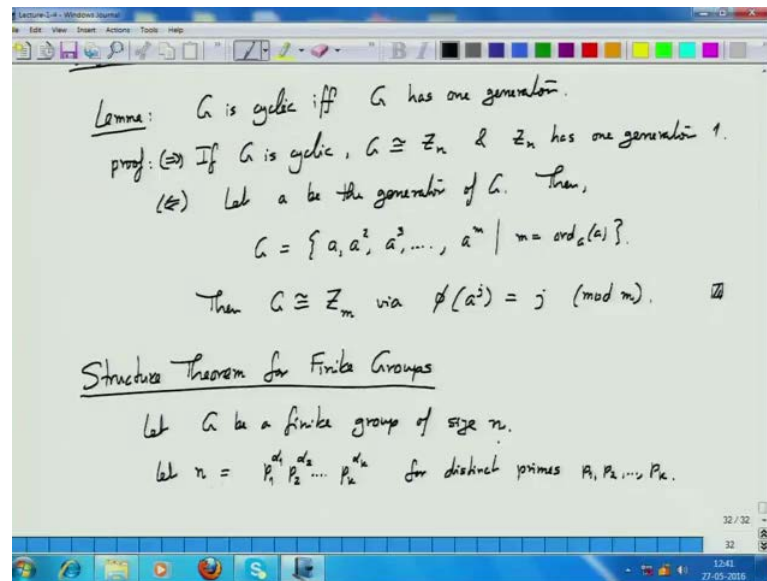 Lecture-1-4 - Windows Journal
Edit View Insert Actions Tools Help
Lemma: G is cyclic iff G has one generator.
proof: (⇒) If G is cyclic, G ≅ Z_n & Z_n has one generator 1.
(⇐) Let a be the generator of G. Then,
G = { a, a², a³, ...., a^m | m = ord_G(a) }.
Then G ≅ Z_m via φ(a^j) = j (mod m).
Structure Theorem for Finite Groups
Let G be a finite group of size n.
Let n = p_1^{α_1} p_2^{α_2} ... p_k^{α_k} for distinct primes p_1, p_2, ..., p_k.
32 / 32
32
12:41
27-05-2016